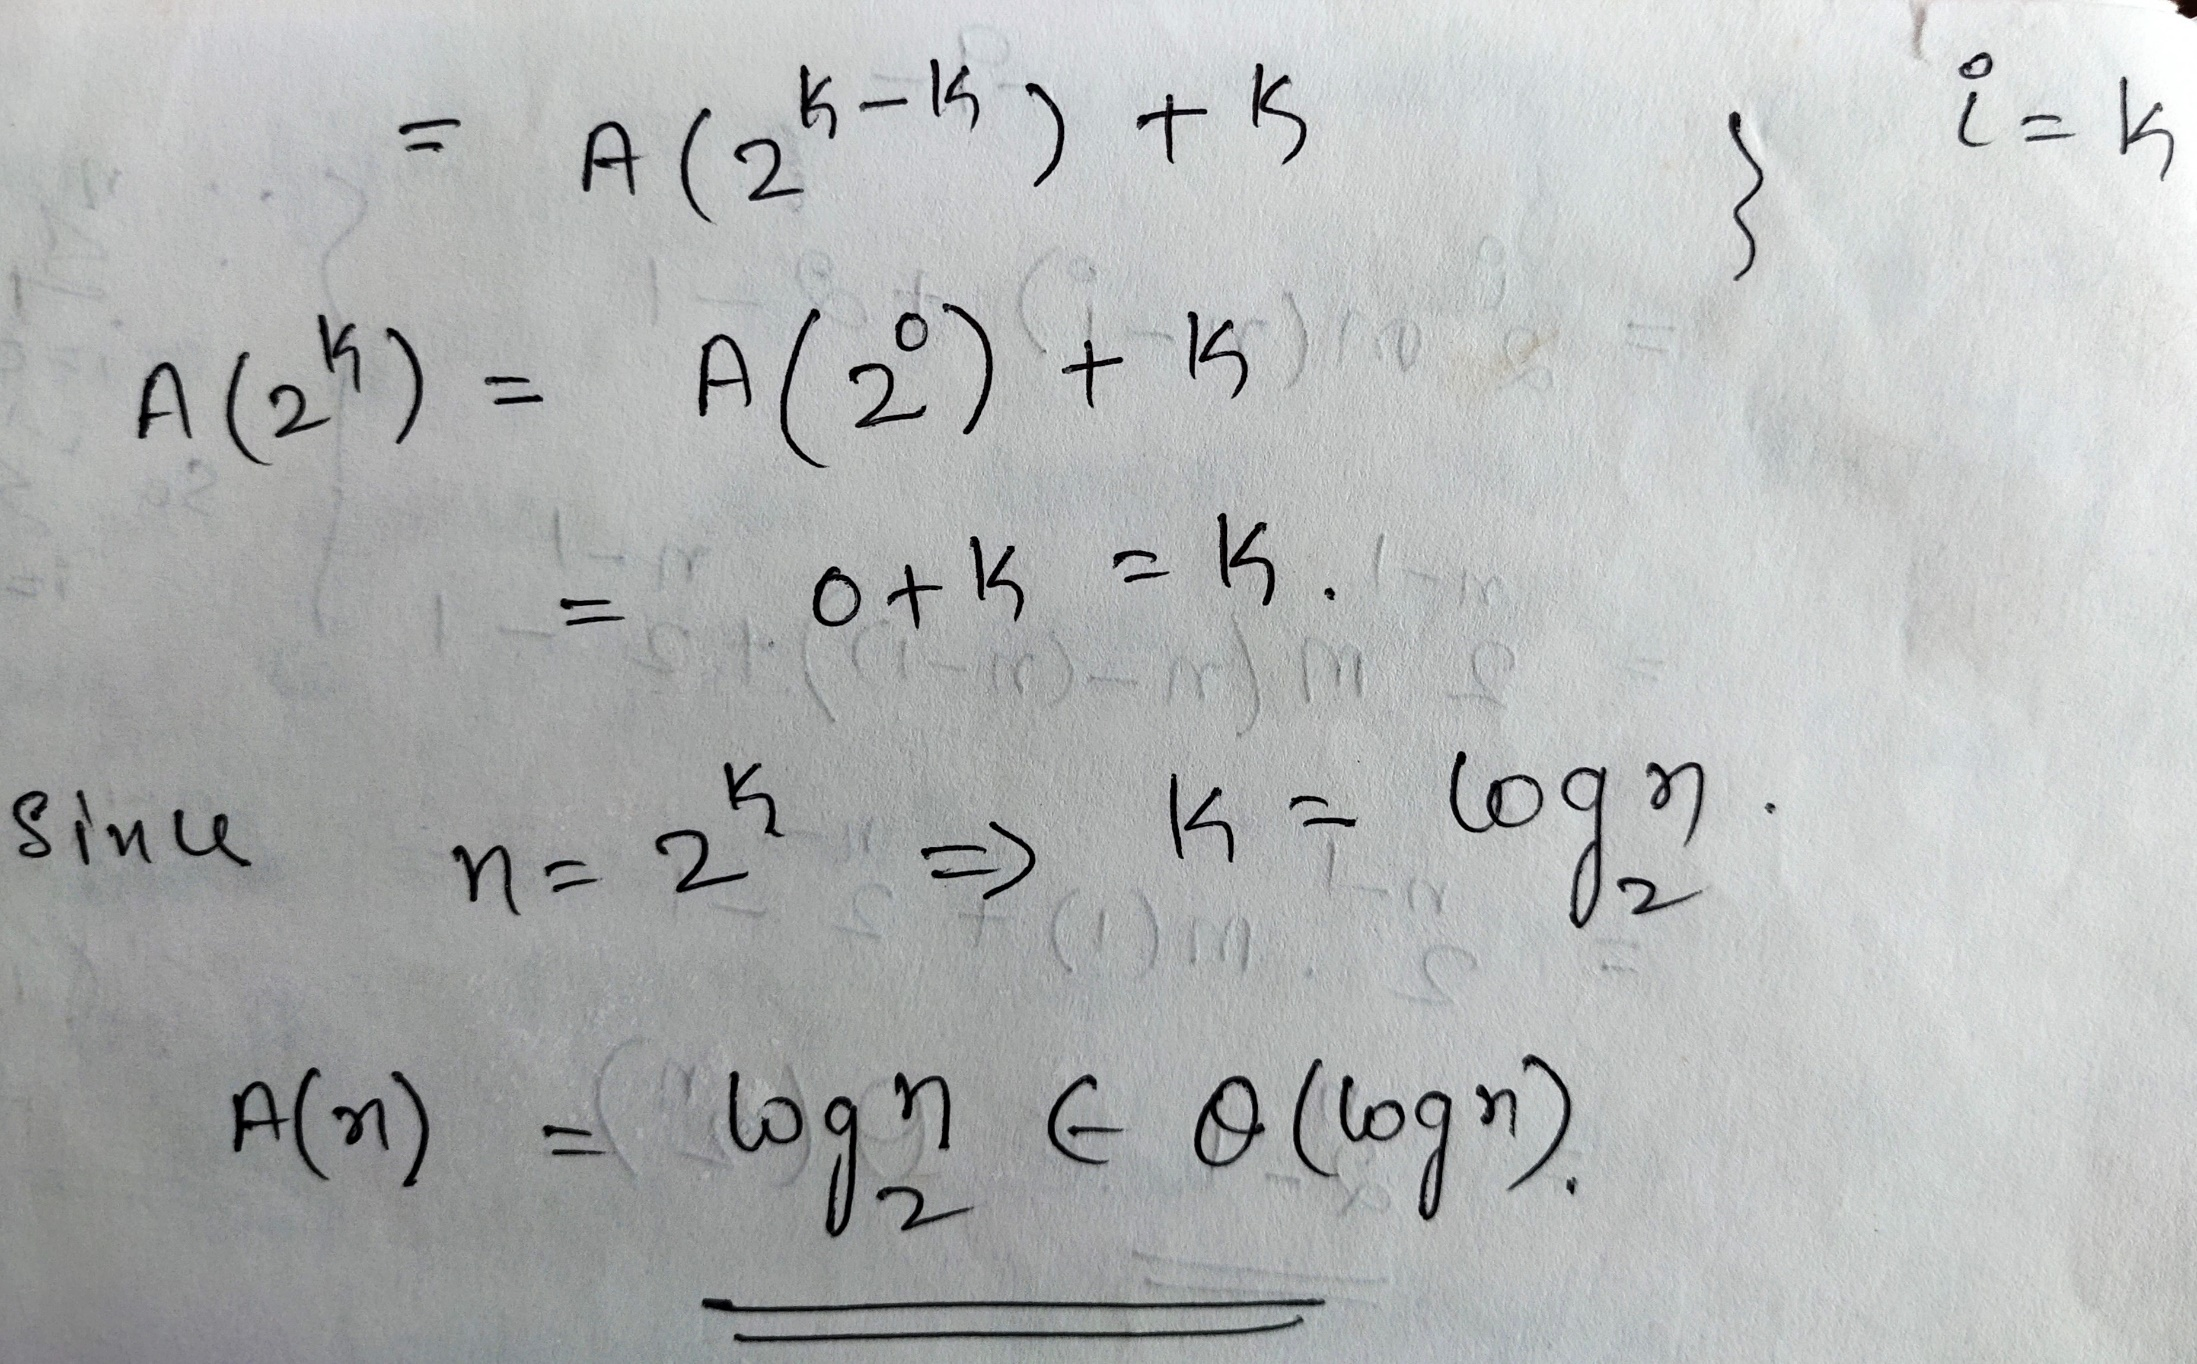 = A(2^{K-K}) + K } i = K
A(2^K) = A(2^0) + K
= 0 + K = K.
Since n = 2^K => K = log_2 n.
A(n) = log_2 n ∈ Θ(log n).